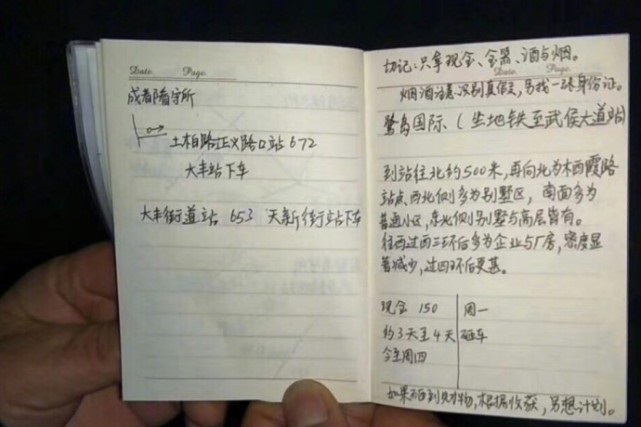 Date. Page.
成都看守所
土柏路正义路口站672
大丰站下车
大丰街道站 653 天新街站下车
切记:只拿现金、金器、酒与烟。
Date. Page.
烟酒注意识别真假,另找一张身份证。
鹭岛国际、(坐地铁至武侯大道站)
到站往北约500米,再向北为木西霞路
站点,西北侧多为别墅区,南面多为
普通小区,东北侧别墅与高层皆有。
往西过西三环后多为企业与厂房,密度显
著减少,过四环后更甚。
现金 150 周一
约3天至4天 砸车
今至周四
如果砸到财物,根据收获,另想计划。